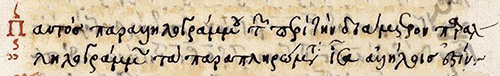 Παντὸς παραλληλογράμμου τῶν περὶ τὴν διάμετρον παραλ
ληλογράμμων τὰ παραπληρώματα ἴσα ἀλλήλοις ἐστίν